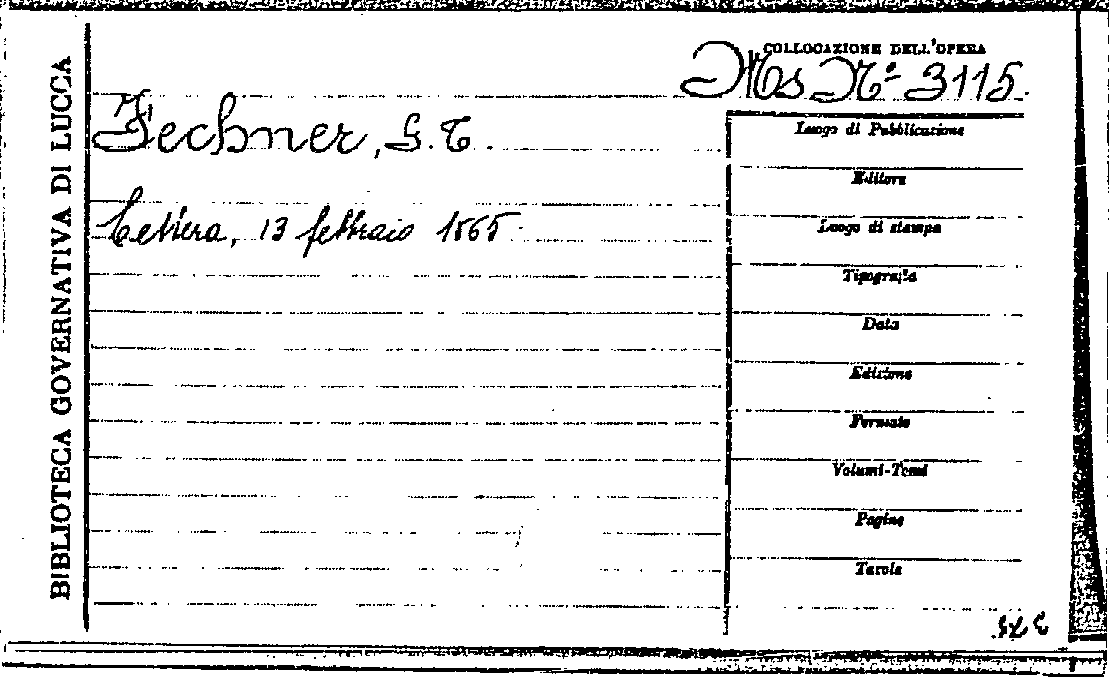 BIBLIOTECA GOVERNATIVA DI LUCCA
COLLOCAZIONE DELL'OPERA
Ms Nº 3115.
Fechner, G. T.
Lettera, 13 febbraio 1865.
Luogo di Pubblicazione
Editore
Luogo di stampa
Tipografia
Data
Edizione
Formato
Volumi-Tomi
Pagine
Tavole